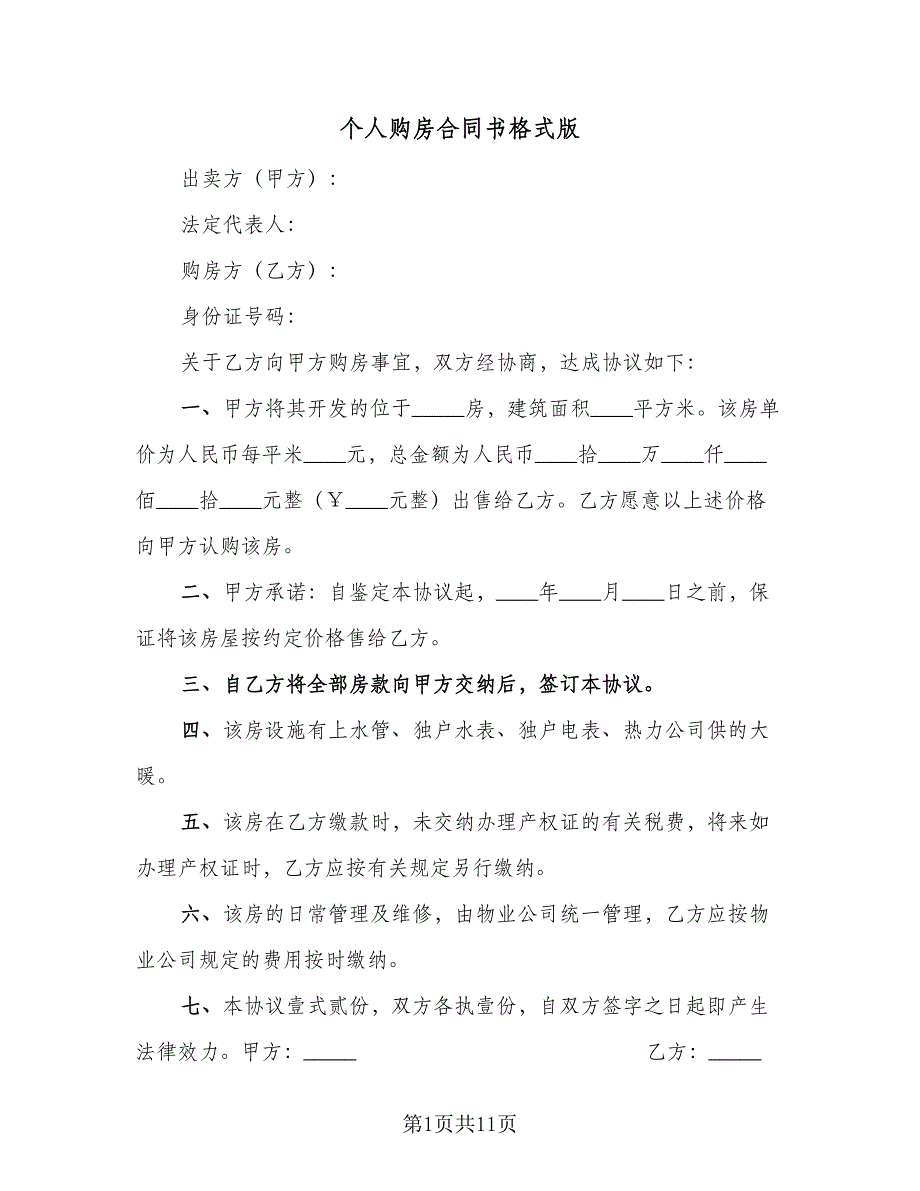 个人购房合同书格式版
出卖方（甲方）：
法定代表人：
购房方（乙方）：
身份证号码：
关于乙方向甲方购房事宜，双方经协商，达成协议如下：
一、甲方将其开发的位于_____房，建筑面积____平方米。该房单
价为人民币每平米____元，总金额为人民币____拾____万____仟____
佰____拾____元整（￥____元整）出售给乙方。乙方愿意以上述价格
向甲方认购该房。
二、甲方承诺：自鉴定本协议起，____年____月____日之前，保
证将该房屋按约定价格售给乙方。
三、自乙方将全部房款向甲方交纳后，签订本协议。
四、该房设施有上水管、独户水表、独户电表、热力公司供的大
暖。
五、该房在乙方缴款时，未交纳办理产权证的有关税费，将来如
办理产权证时，乙方应按有关规定另行缴纳。
六、该房的日常管理及维修，由物业公司统一管理，乙方应按物
业公司规定的费用按时缴纳。
七、本协议壹式贰份，双方各执壹份，自双方签字之日起即产生
法律效力。甲方：_____ 乙方：_____
第1页共11页